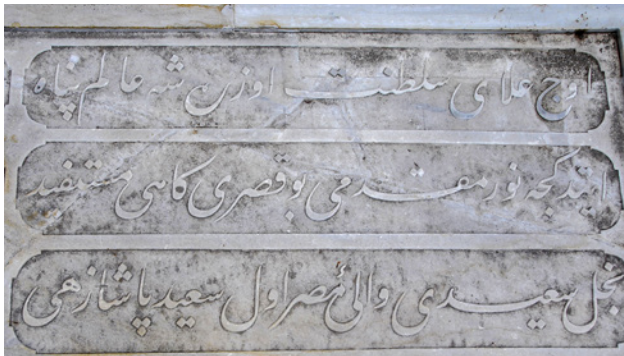 اوج علای سلطنت اوزره شه عالم پناه
ایتدکجه نور مقدمی بو قصری کاهی مستفید
نجل سعیدی والئ مصر اول سعید پاشا زهی